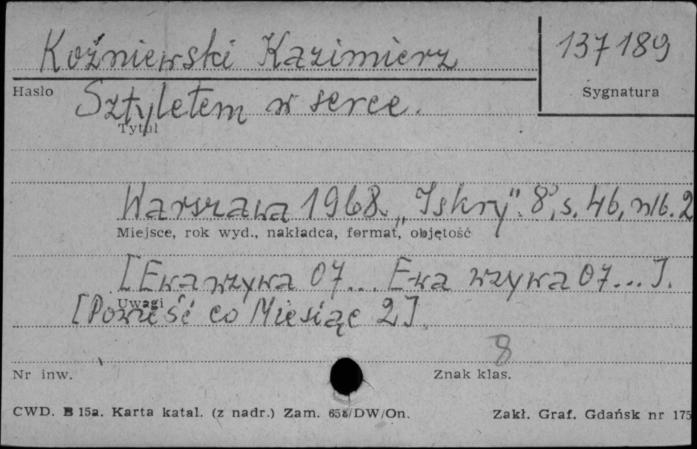 Koźniewski Kazimierz
137189
Hasło
Sygnatura
Sztyletem w serce.
Tytuł
Warszawa 1968. „Iskry". 8°, s. 46, nlb. 2
Miejsce, rok wyd., nakładca, format, objętość
[Ewa wzywa 07... Ewa wzywa 07...].
Uwagi
[Powieść co Miesiąc 2].
8
Nr inw.
Znak klas.
CWD. B 15a. Karta katal. (z nadr.) Zam. /DW/On.
Zakł. Graf. Gdańsk nr 175